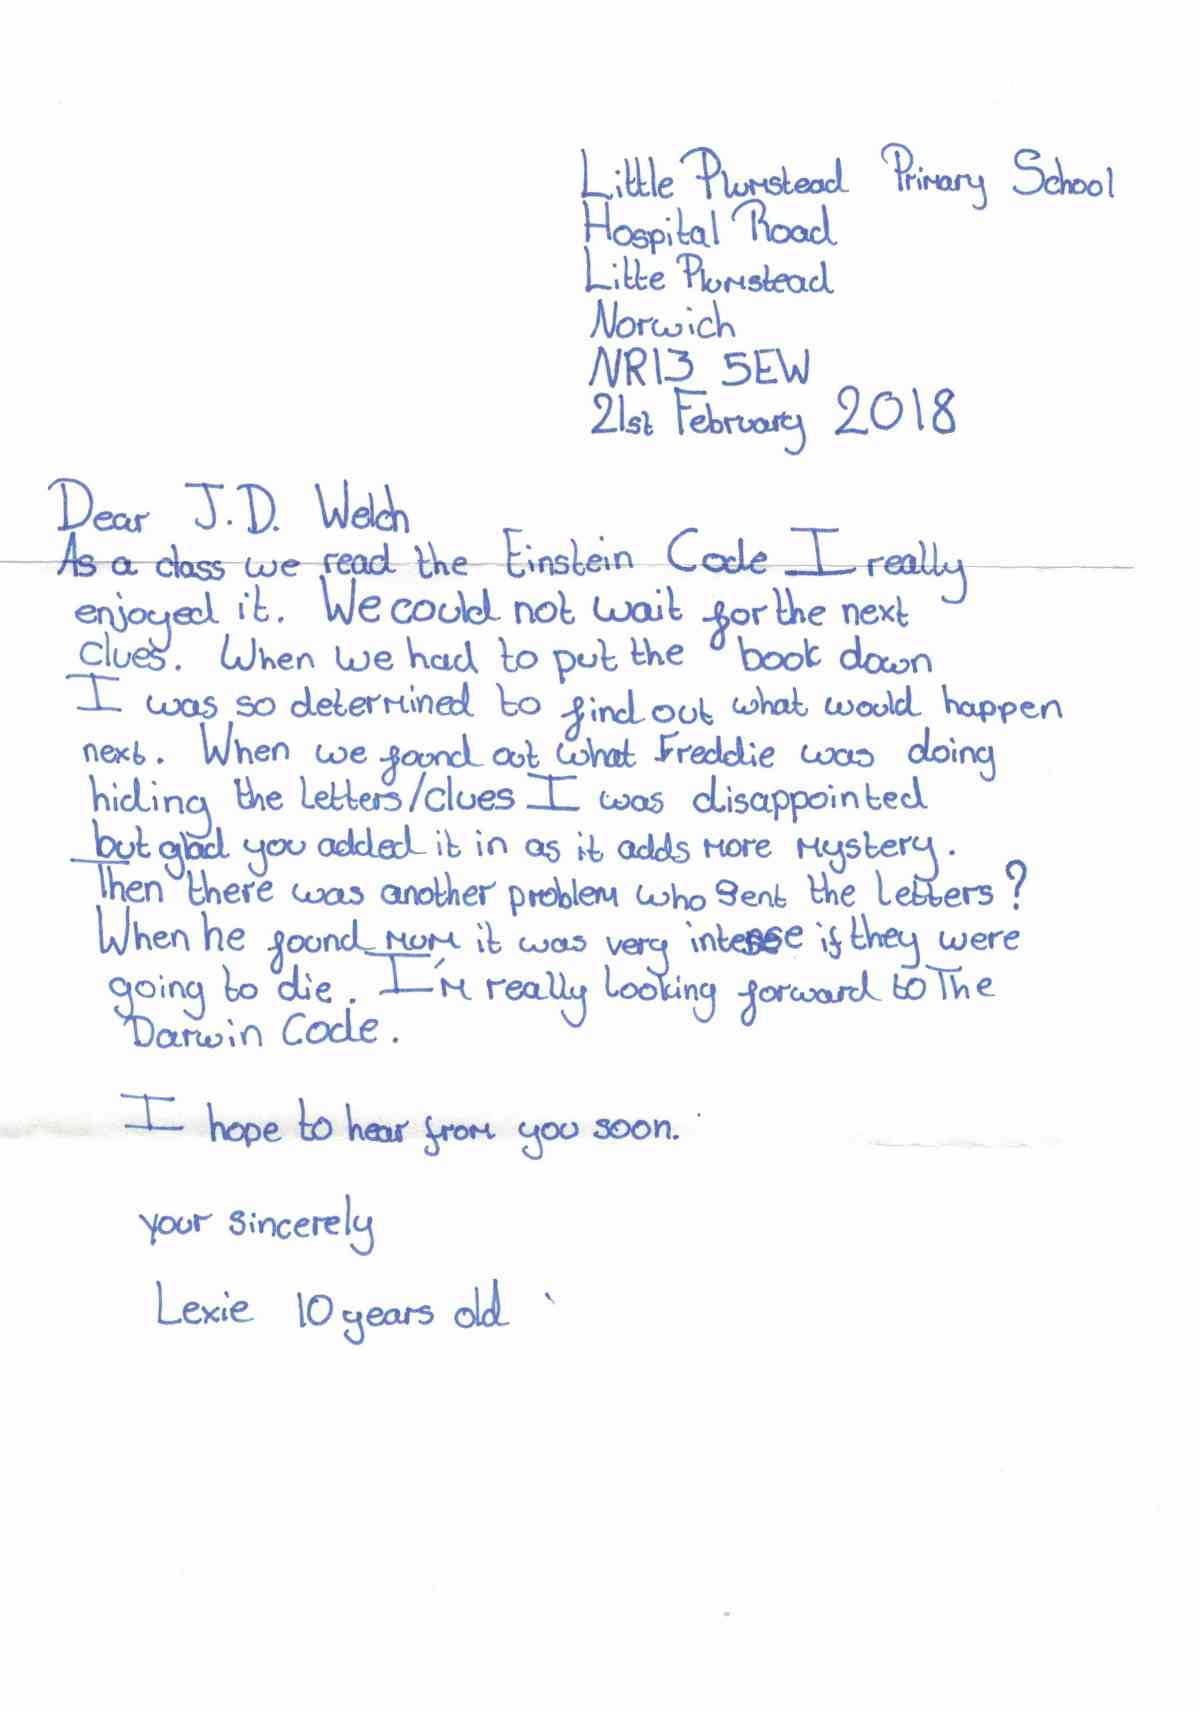 Little Plumstead Primary School
Hospital Road
Litte Plumstead
Norwich
NR13 5EW
21st February 2018
Dear J.D. Welch
As a class we read the Einstein Code I really
enjoyed it. We could not wait for the next
clues. When we had to put the book down
I was so determined to find out what would happen
next. When we found out what Freddie was doing
hiding the letters/clues I was disappointed
but glad you added it in as it adds more mystery.
Then there was another problem who sent the letters?
When he found mum it was very intense if they were
going to die. I'm really looking forward to The
Darwin Code.
I hope to hear from you soon.
your sincerely
Lexie 10 years old